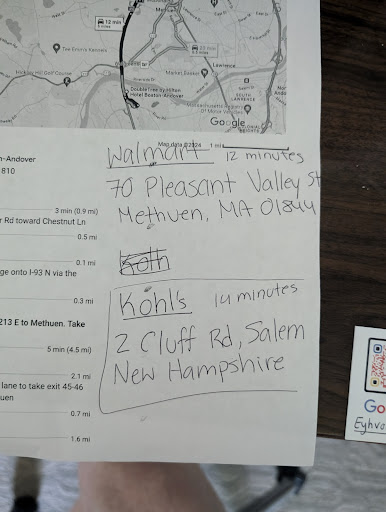 12 min
Market Basket
Lawrence
SOUTH
LAWRENCE
DoubleTree by Hilton
Hotel Boston-Andover
Google
Map data ©2024 1 mi
n-Andover
810
3 min (0.9 mi)
r Rd toward Chestnut Ln
0.5 mi
0.1 mi
ge onto I-93 N via the
0.3 mi
213 E to Methuen. Take
5 min (4.5 mi)
2.1 mi
lane to take exit 45-46
uen
0.7 mi
1.6 mi
Walmart 12 minutes
70 Pleasant Valley St
Methuen, MA 01844
Kohl's 14 minutes
2 Cluff Rd, Salem
New Hampshire
Go